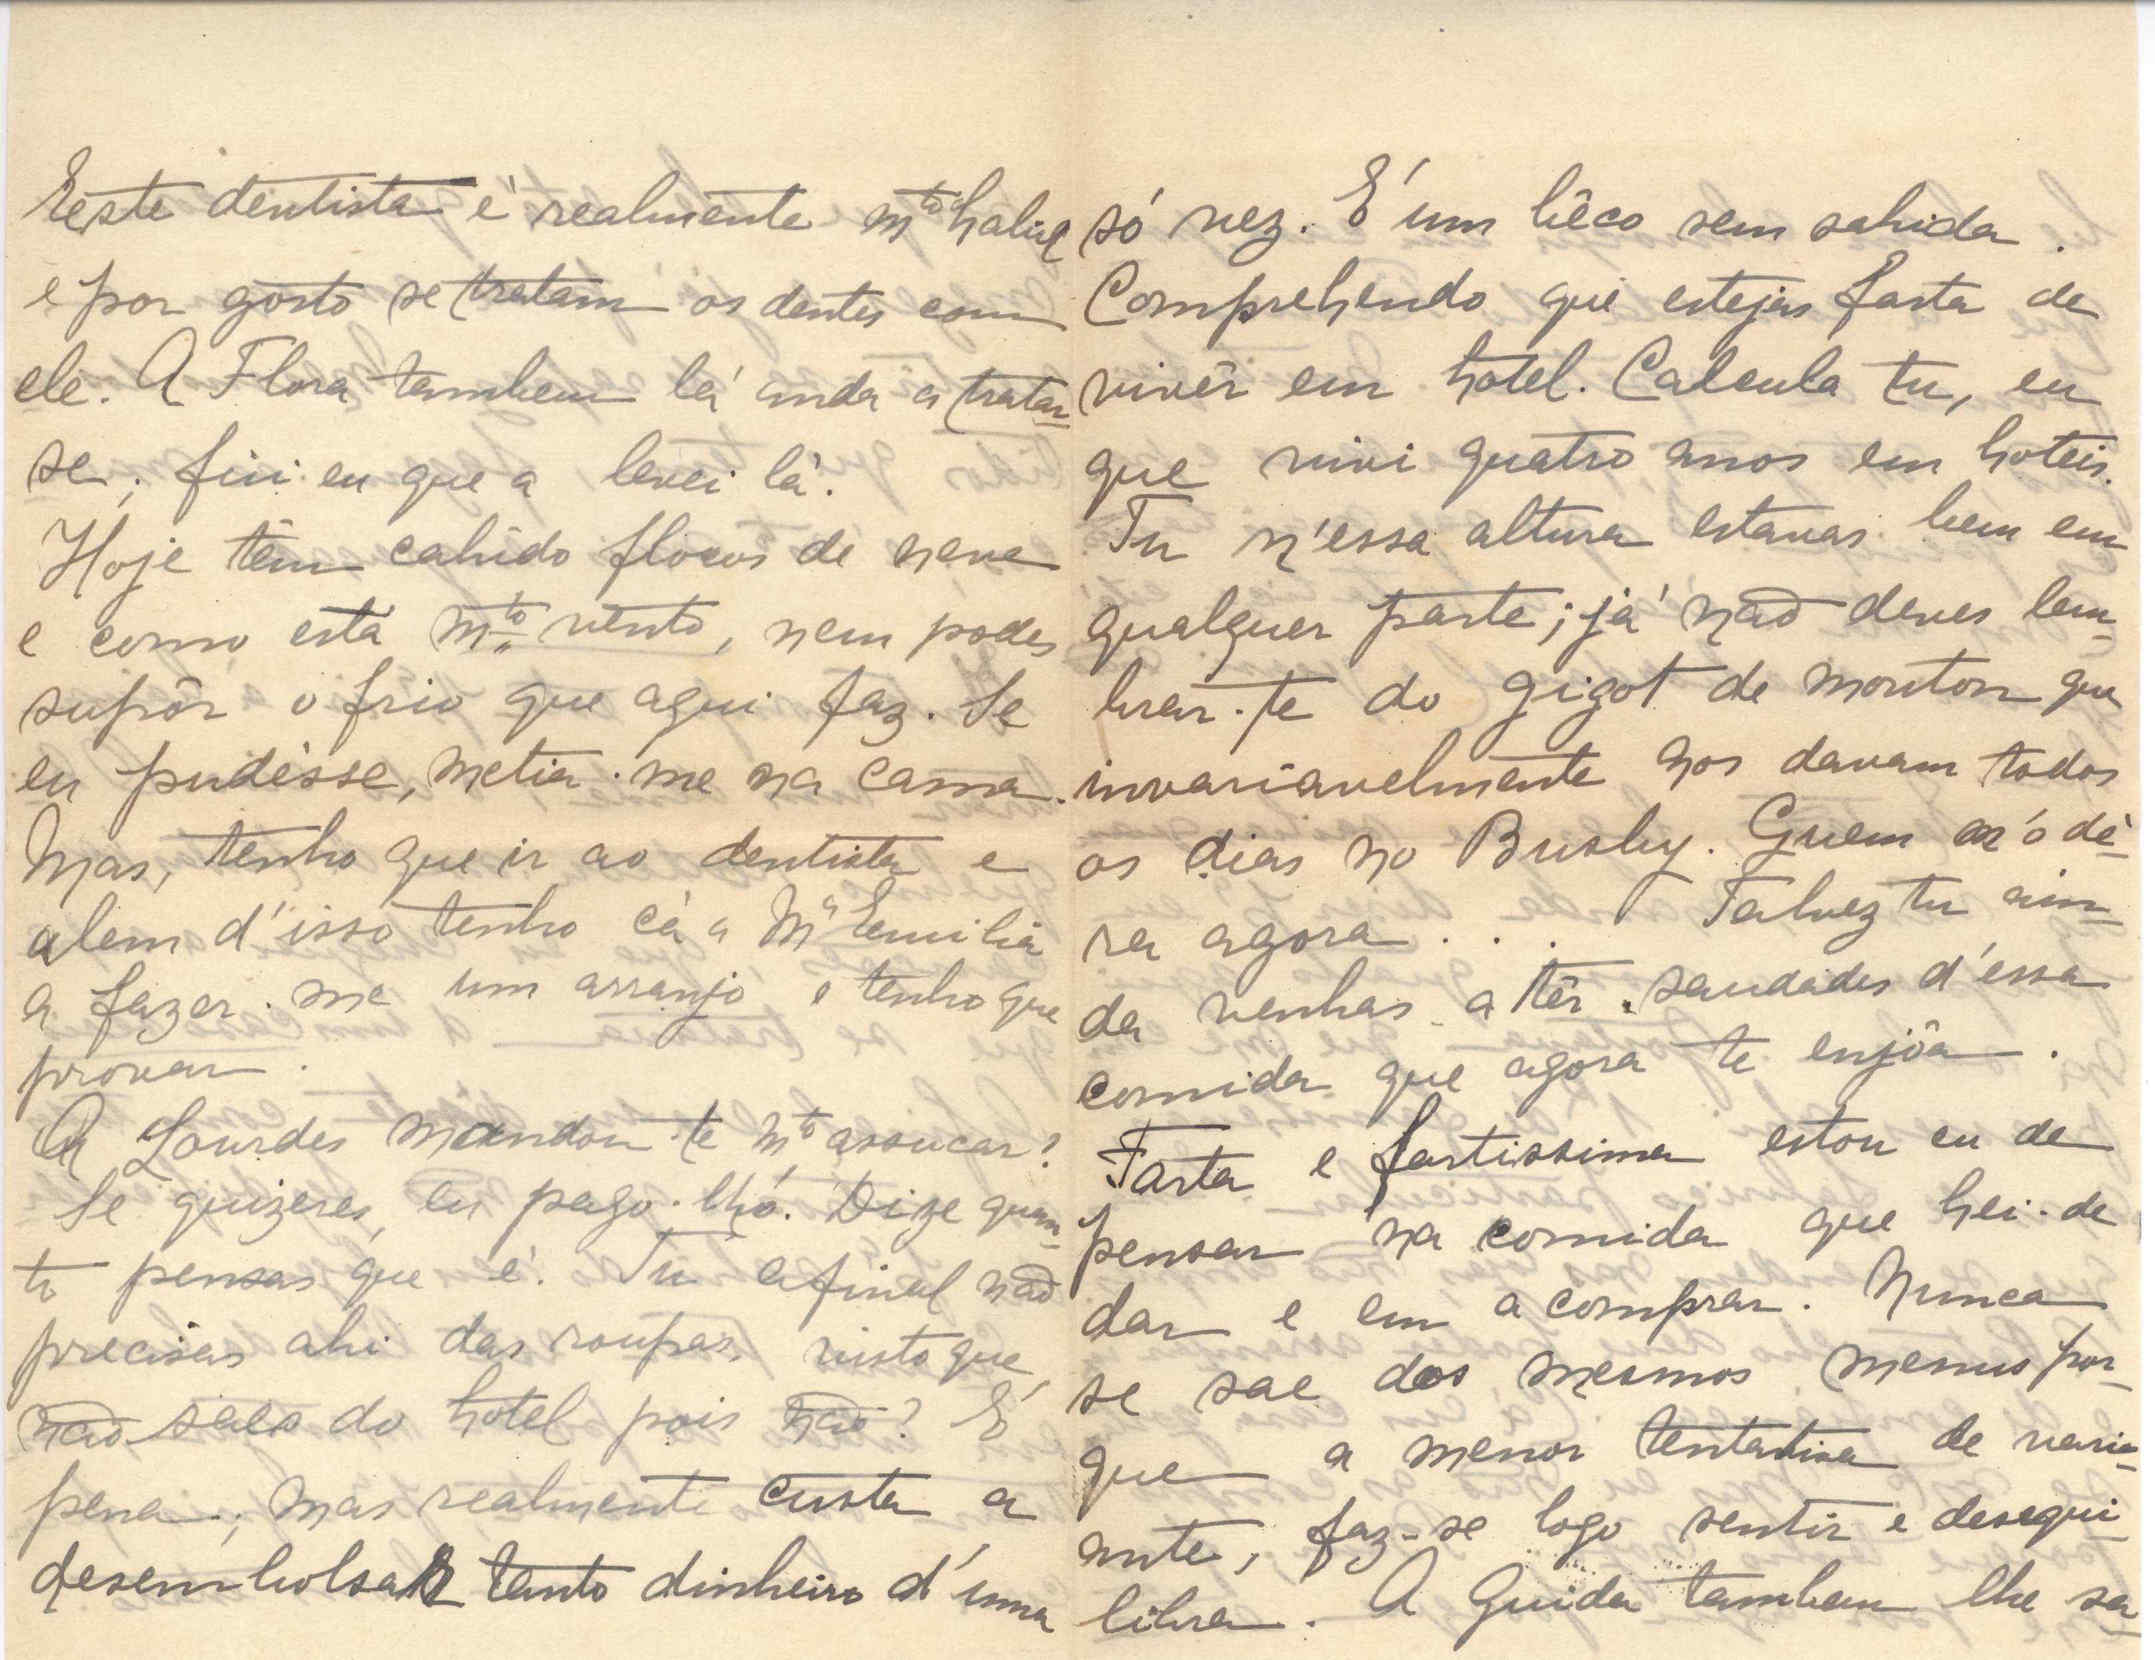 Este dentista é realmente mto habil
e por gosto se tratam os dentes com
ele. A Flora tambem lá anda a tratar-
se; fui eu que a levei lá.
Hoje têm cahido flocos de neve
e como está mto vento, nem podes
supôr o frio que aqui faz. Se
eu pudésse, metia-me na cama.
Mas, tenho que ir ao dentista e
alem d'isso tenho cá a Mª Emilia
a fazer-me um arranjo e tenho que
provar.
A Lourdes mandou-te mto assucar?
Se quizeres, eu pago-lhó. Dize quan-
to pensas que é. Tu afinal não
precisas ahi das roupas, visto que
não saes do hotel pois não? É
pena; mas realmente custa a
desembolsar tanto dinheiro d'uma
só vez. É um bêco sem sahida.
Comprehendo que estejas farta de
vivêr em hotel. Calcula tu, eu
que vivi quatro anos em hoteis.
Tu n'essa altura estavas bem em
qualquer parte; já não deves lem-
brar-te do gigot de mouton que
invariavelmente nos davam todos
os dias no Busby. Quem m'ó dé-
ra agora... Talvez tu ain-
da venhas a têr saudades d'essa
comida que agora te enjôa.
Farta e fartissima estou eu de
pensar na comida que hei-de
dar e em a comprar. Nunca
se sae dos mesmos menus por-
que a menor tentativa de vari-
ante, faz-se logo sentir e desequi-
libra. A Guida tambem lhe sa-